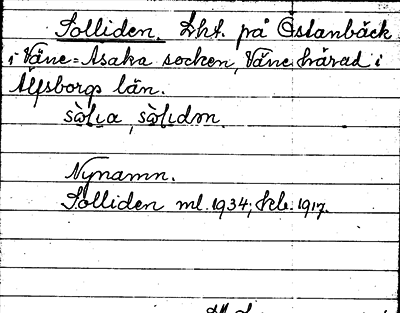 Solliden. Lht. på Östanbäck
i Väne-Åsaka socken, Väne härad i
Älfsborgs län.
Nynamn.
Solliden ml. 1934; kb. 1917.